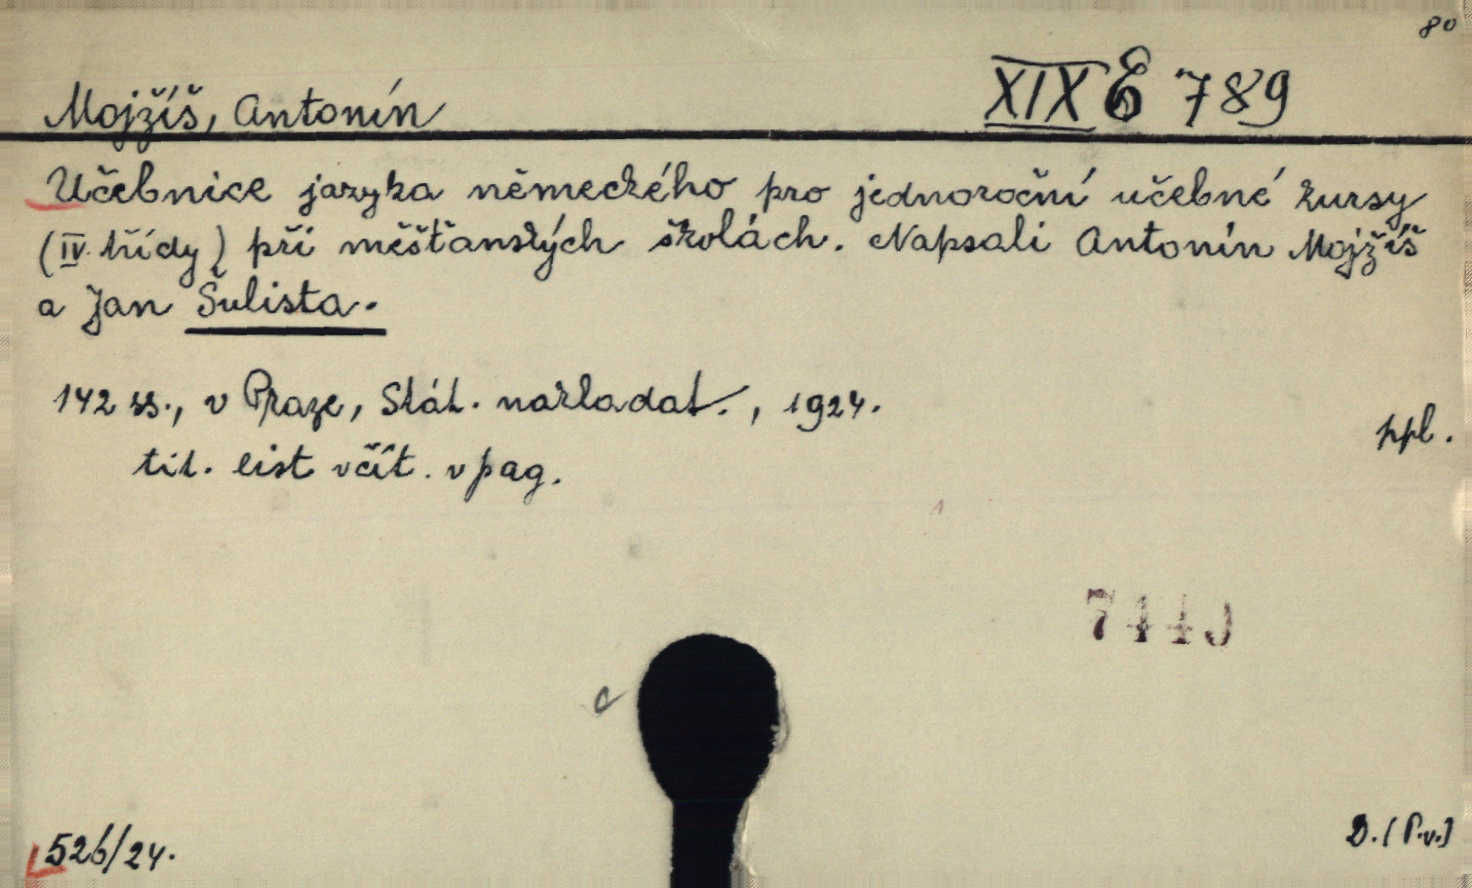 80
Mojžíš, Antonín XIX E 789
Učebnice jazyka německého pro jednoroční učebné kursy
(IV. třídy) při měšťanských školách. Napsali Antonín Mojžíš
a Jan Šulista.
142 ss., v Praze, Stát. nakladat., 1924.
ppl.
tit. list včít. v pag.
7440
c
526/24.
D. (P.v.)